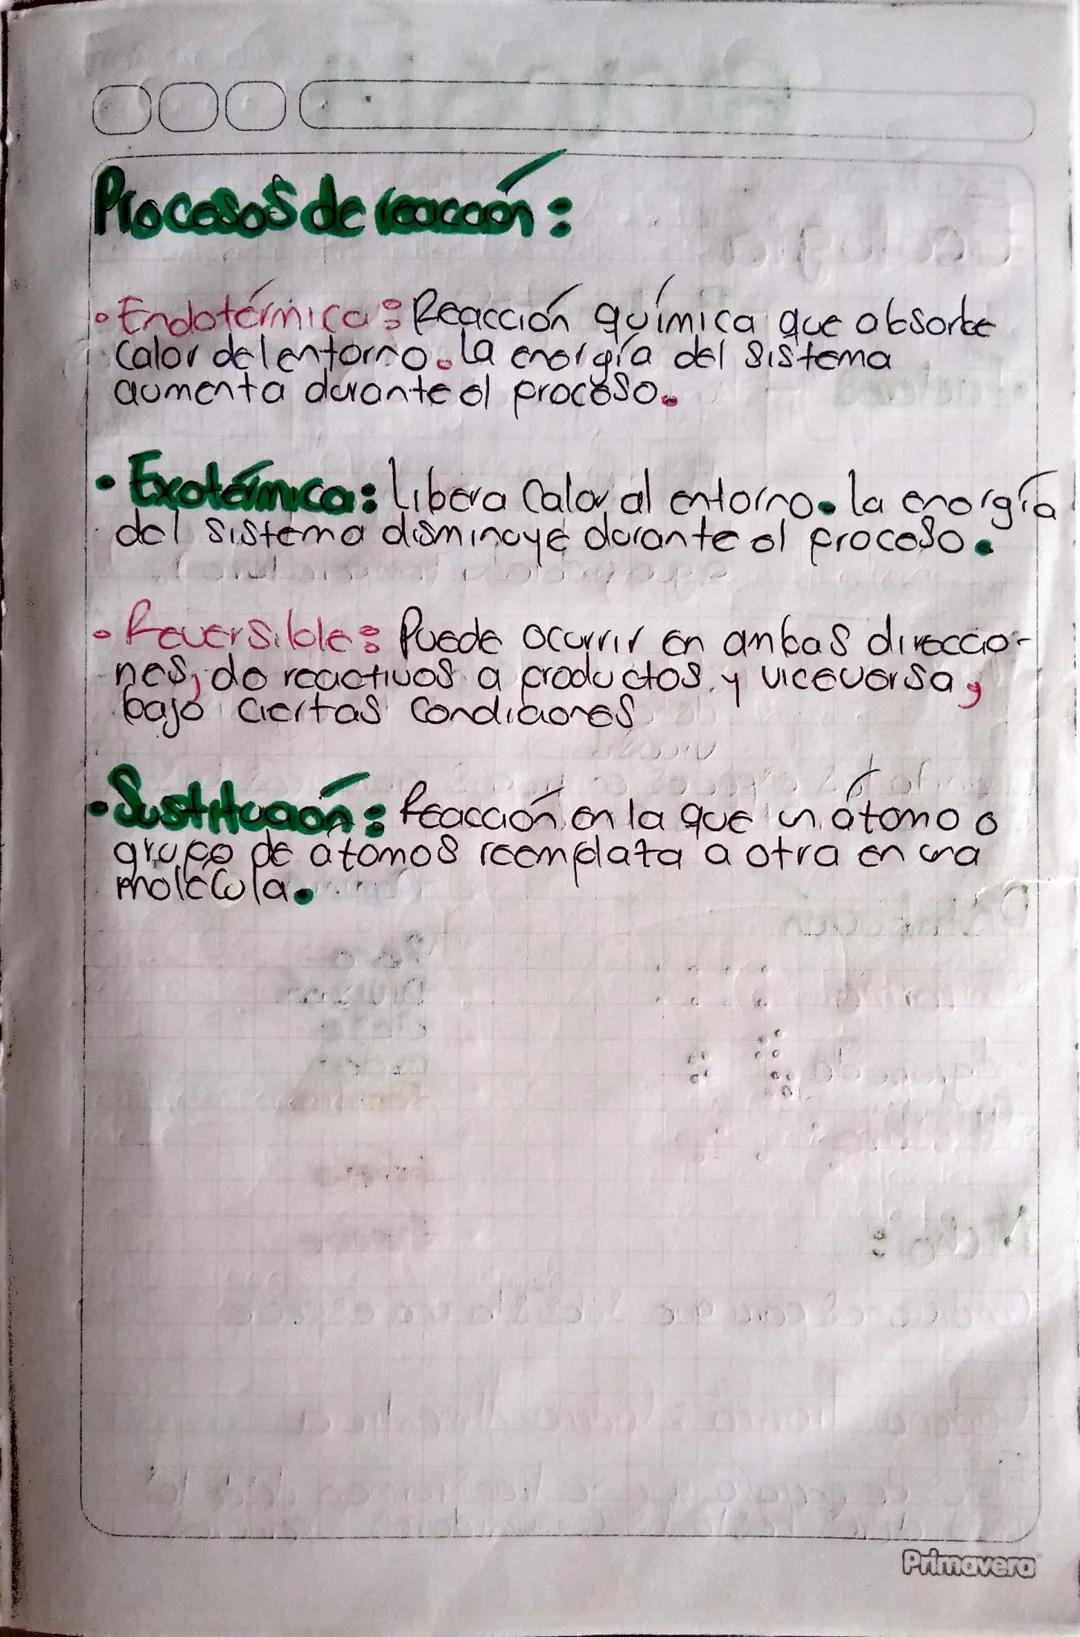 Procesos de reacción:
• Endotérmica: Reacción química que absorbe
calor del entorno. la energía del sistema
aumenta durante el proceso.
• Exotérmica: libera calor al entorno. la energía
del sistema disminuye durante el proceso.
• Reversible: Puede ocurrir en ambas direccio-
nes, de reactivos a productos y viceversa,
bajo ciertas condiciones
• Sustitución: Reacción en la que un átomo o
grupo de átomos reemplata a otra en una
molécula.
Primavera